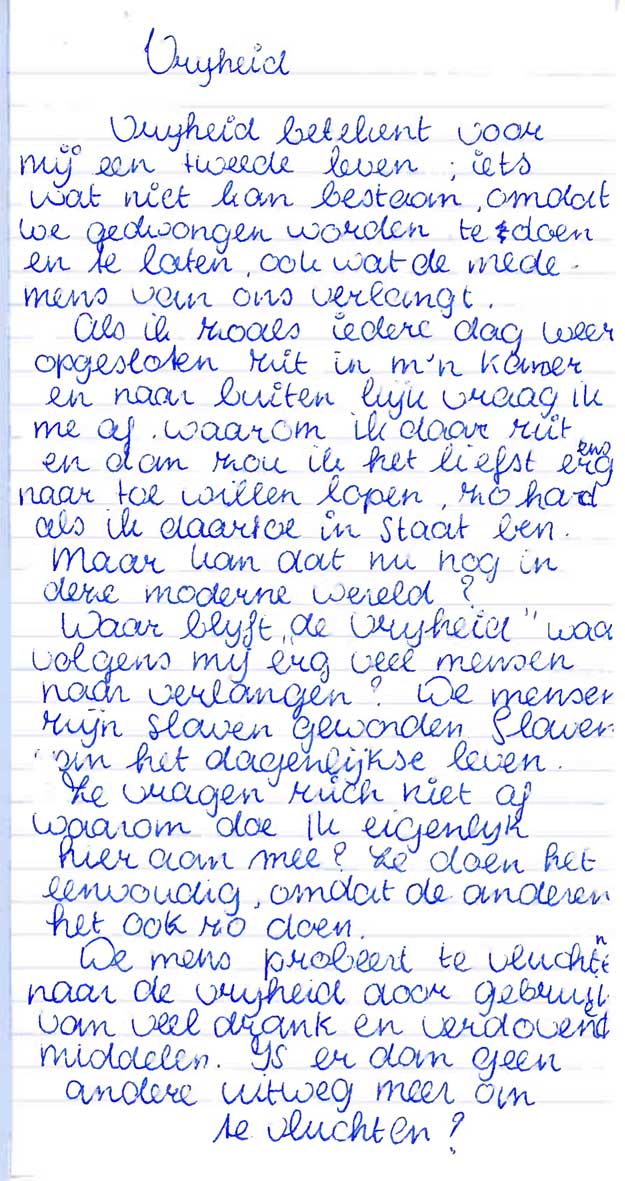 Vrijheid
Vrijheid betekent voor
mij een tweede leven; iets
wat niet kan bestaan, omdat
we gedwongen worden te doen
en te laten, ook wat de mede-
mens van ons verlangt.
Als ik zoals iedere dag weer
opgesloten zit in m'n kamer
en naar buiten kijk vraag ik
me af. waarom ik daar zit,
en dan zou ik het liefst ergens
naar toe willen lopen, zo hard
als ik daartoe in staat ben.
Maar kan dat nu nog in
deze moderne wereld?
Waar blijft „de vrijheid" waa
volgens mij erg veel mensen
naar verlangen? De mensen
zijn slaven geworden slaven
om het dagenlijkse leven.
Ze vragen zich niet af
waarom doe ik eigenlijk
hier aan mee? Ze doen het
eenvoudig, omdat de anderen
het ook zo doen.
De mens probeert te vluchten
naar de vrijheid door gebruik
van veel drank en verdovend
middelen. Is er dan geen
andere uitweg meer om
te vluchten?